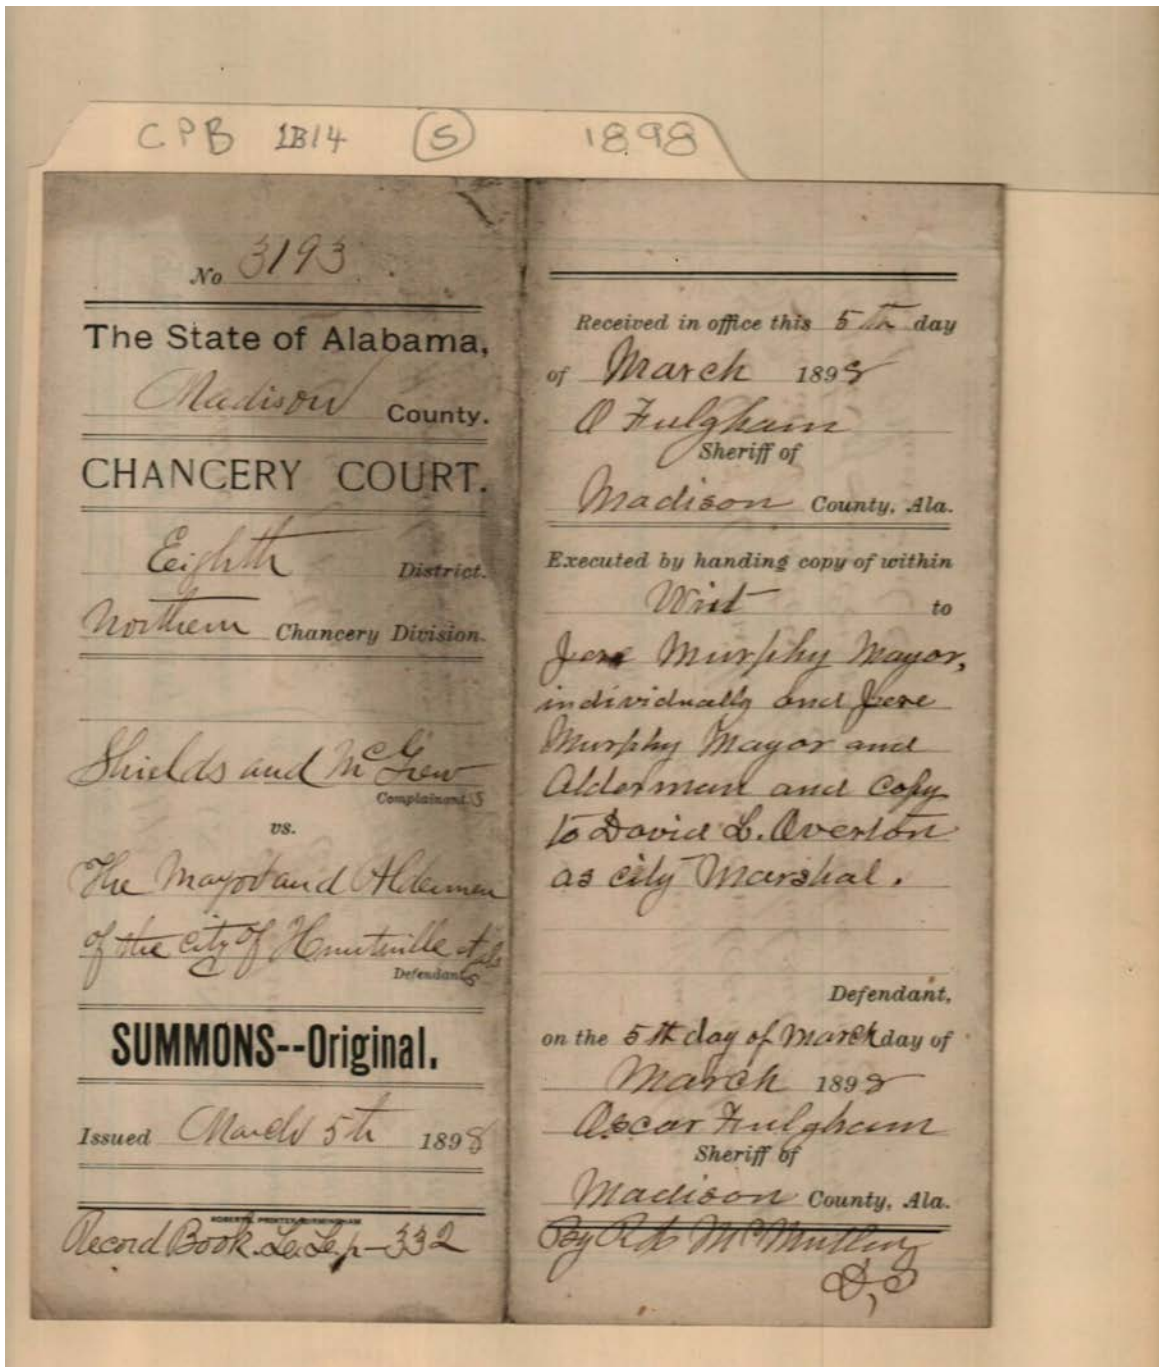 CPB 1B14 (5) 1898
No 3193
The State of Alabama,
Madison County.
CHANCERY COURT.
Eighth District.
Northern Chancery Division.
Shields and McGrew
Complainants
vs.
The Mayor and Aldermen
of the city of Huntsville Ala
Defendants
SUMMONS--Original.
Issued March 5th 1898
ROBERTS, PRINTER, BIRMINGHAM
Record Book p-332
Received in office this 5th day
of March 1898
O Fulgham
Sheriff of
Madison County, Ala.
Executed by handing copy of within
Writ to
Jere Murphy Mayor,
individually and Jere
Murphy Mayor and
Alderman and copy
to David L. Overton
as city Marshal.
Defendant,
on the 5th day of March day of
March 1898
Oscar Fulgham
Sheriff of
Madison County, Ala.
By McMullin
D,S